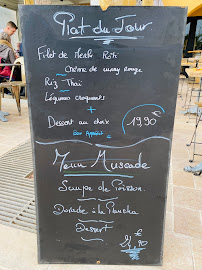 Plat du Jour
Filet de Merlu Rôti
Crème de curry rouge
Riz Thaï
Légumes croquants
+
Dessert au choix
19,90€
Bon Appétit
Menu Muscade
Soupe de Poisson
Dorade à la Plancha
Dessert